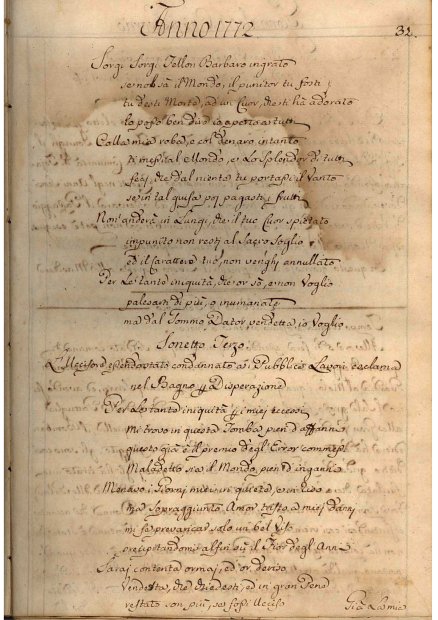 Anno 1772.
32.
Sorgi Sorgi Fellon Barbaro ingrato
se non sà il Mondo, il punitor tu fosti
tu desti Morte, ad un Cuor, che t'hà adorato
lo posso ben dire io aperto a tutti
Colla mia robba, e col denaro intanto
ti mesi al Mondo, et Lo Splendor di tutti
feci, che dal niente tu portasti il Vanto
se in tal guisa poi pagasti i frutti
Non anderà in Lungi, che il tuo Cuor spietato
impunito non resti al Sacro Soglio
ed il Carattere tuo, non venghi annullato
Per Le tante iniquità, che or sò, e non Voglio
palesarti di più, o inumanato
ma dal Sommo Dator vendetta io Voglio.
Sonetto Terzo.
L'Uccisore essendo stato condannato a' Pubblici Lavori esclama
nel Bagno p Disperazione
Per Le tante iniquità p i miei eccessi
mi trovo in questa Tomba pien d'affanni
questo già è il premio degl'Error commessi
Maladetto sia il Mondo, pien d'inganni
Menavo i Giorni miei in quiete, e in
ma Sopraggiunto Amor tristo a miei danni
mi fà prevaricar solo un bel Viso
precipitandomi alfin sù il Fior degl'Anni
Sarai contenta ormai, ed or deriso
Vendetta, che chiedesti, ed in gran Pene
restato son più, se fossi Ucciso
Già